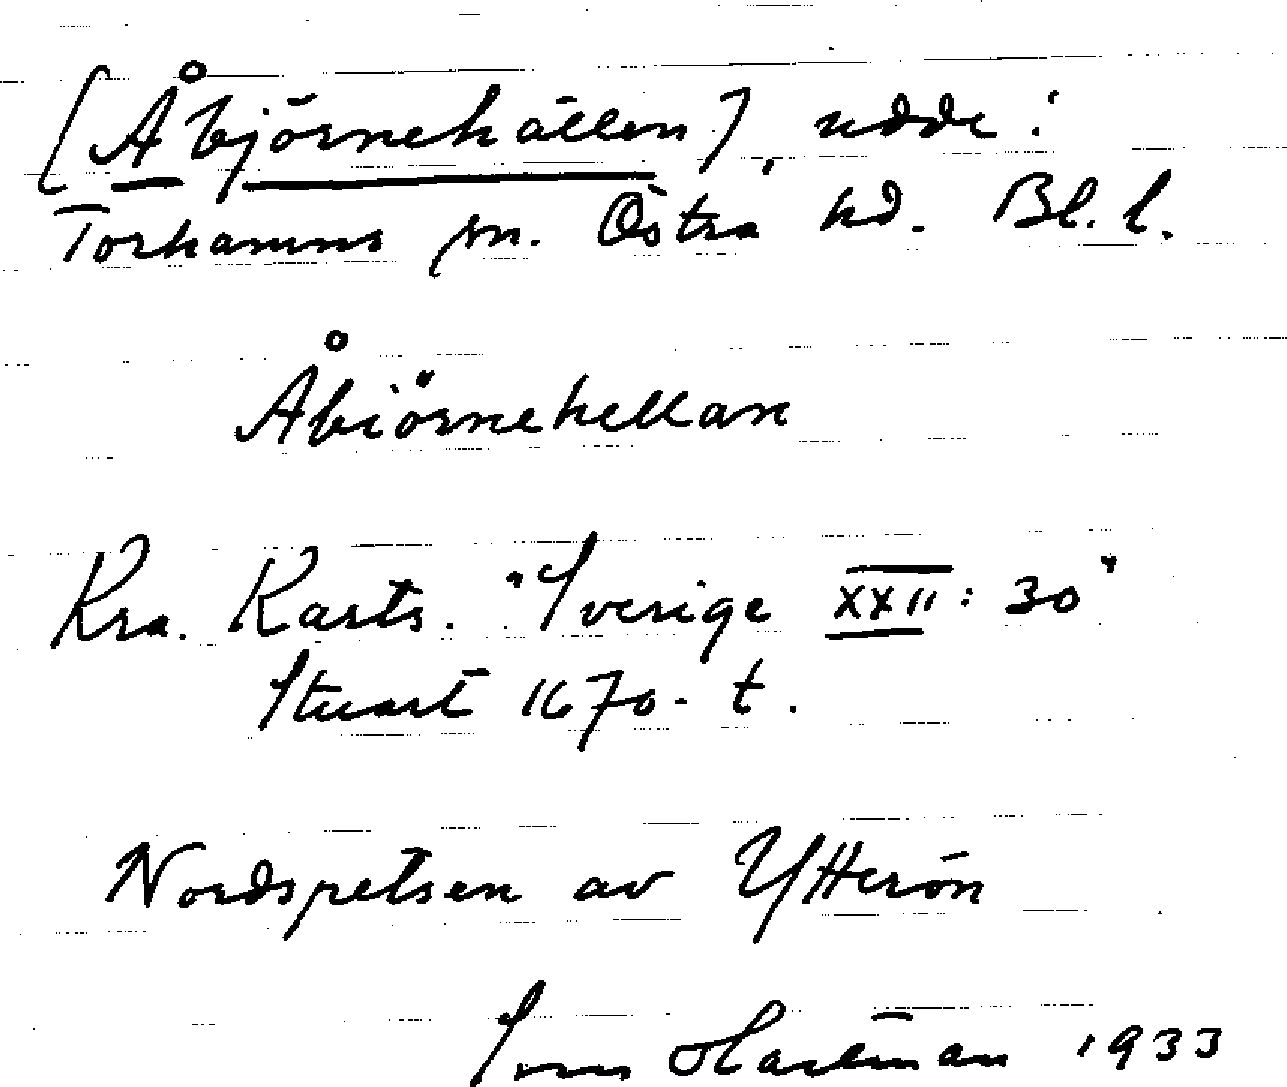 [Åbjörnehällen], udde i
Torhamns sn. Östra hd. Bl. l.
Åbiörnehellan
Kra. Karts. "Sverige XXII: 30"
Stuart 1670-t.
Nordspetsen av Ytterön
Sven Hartman 1933